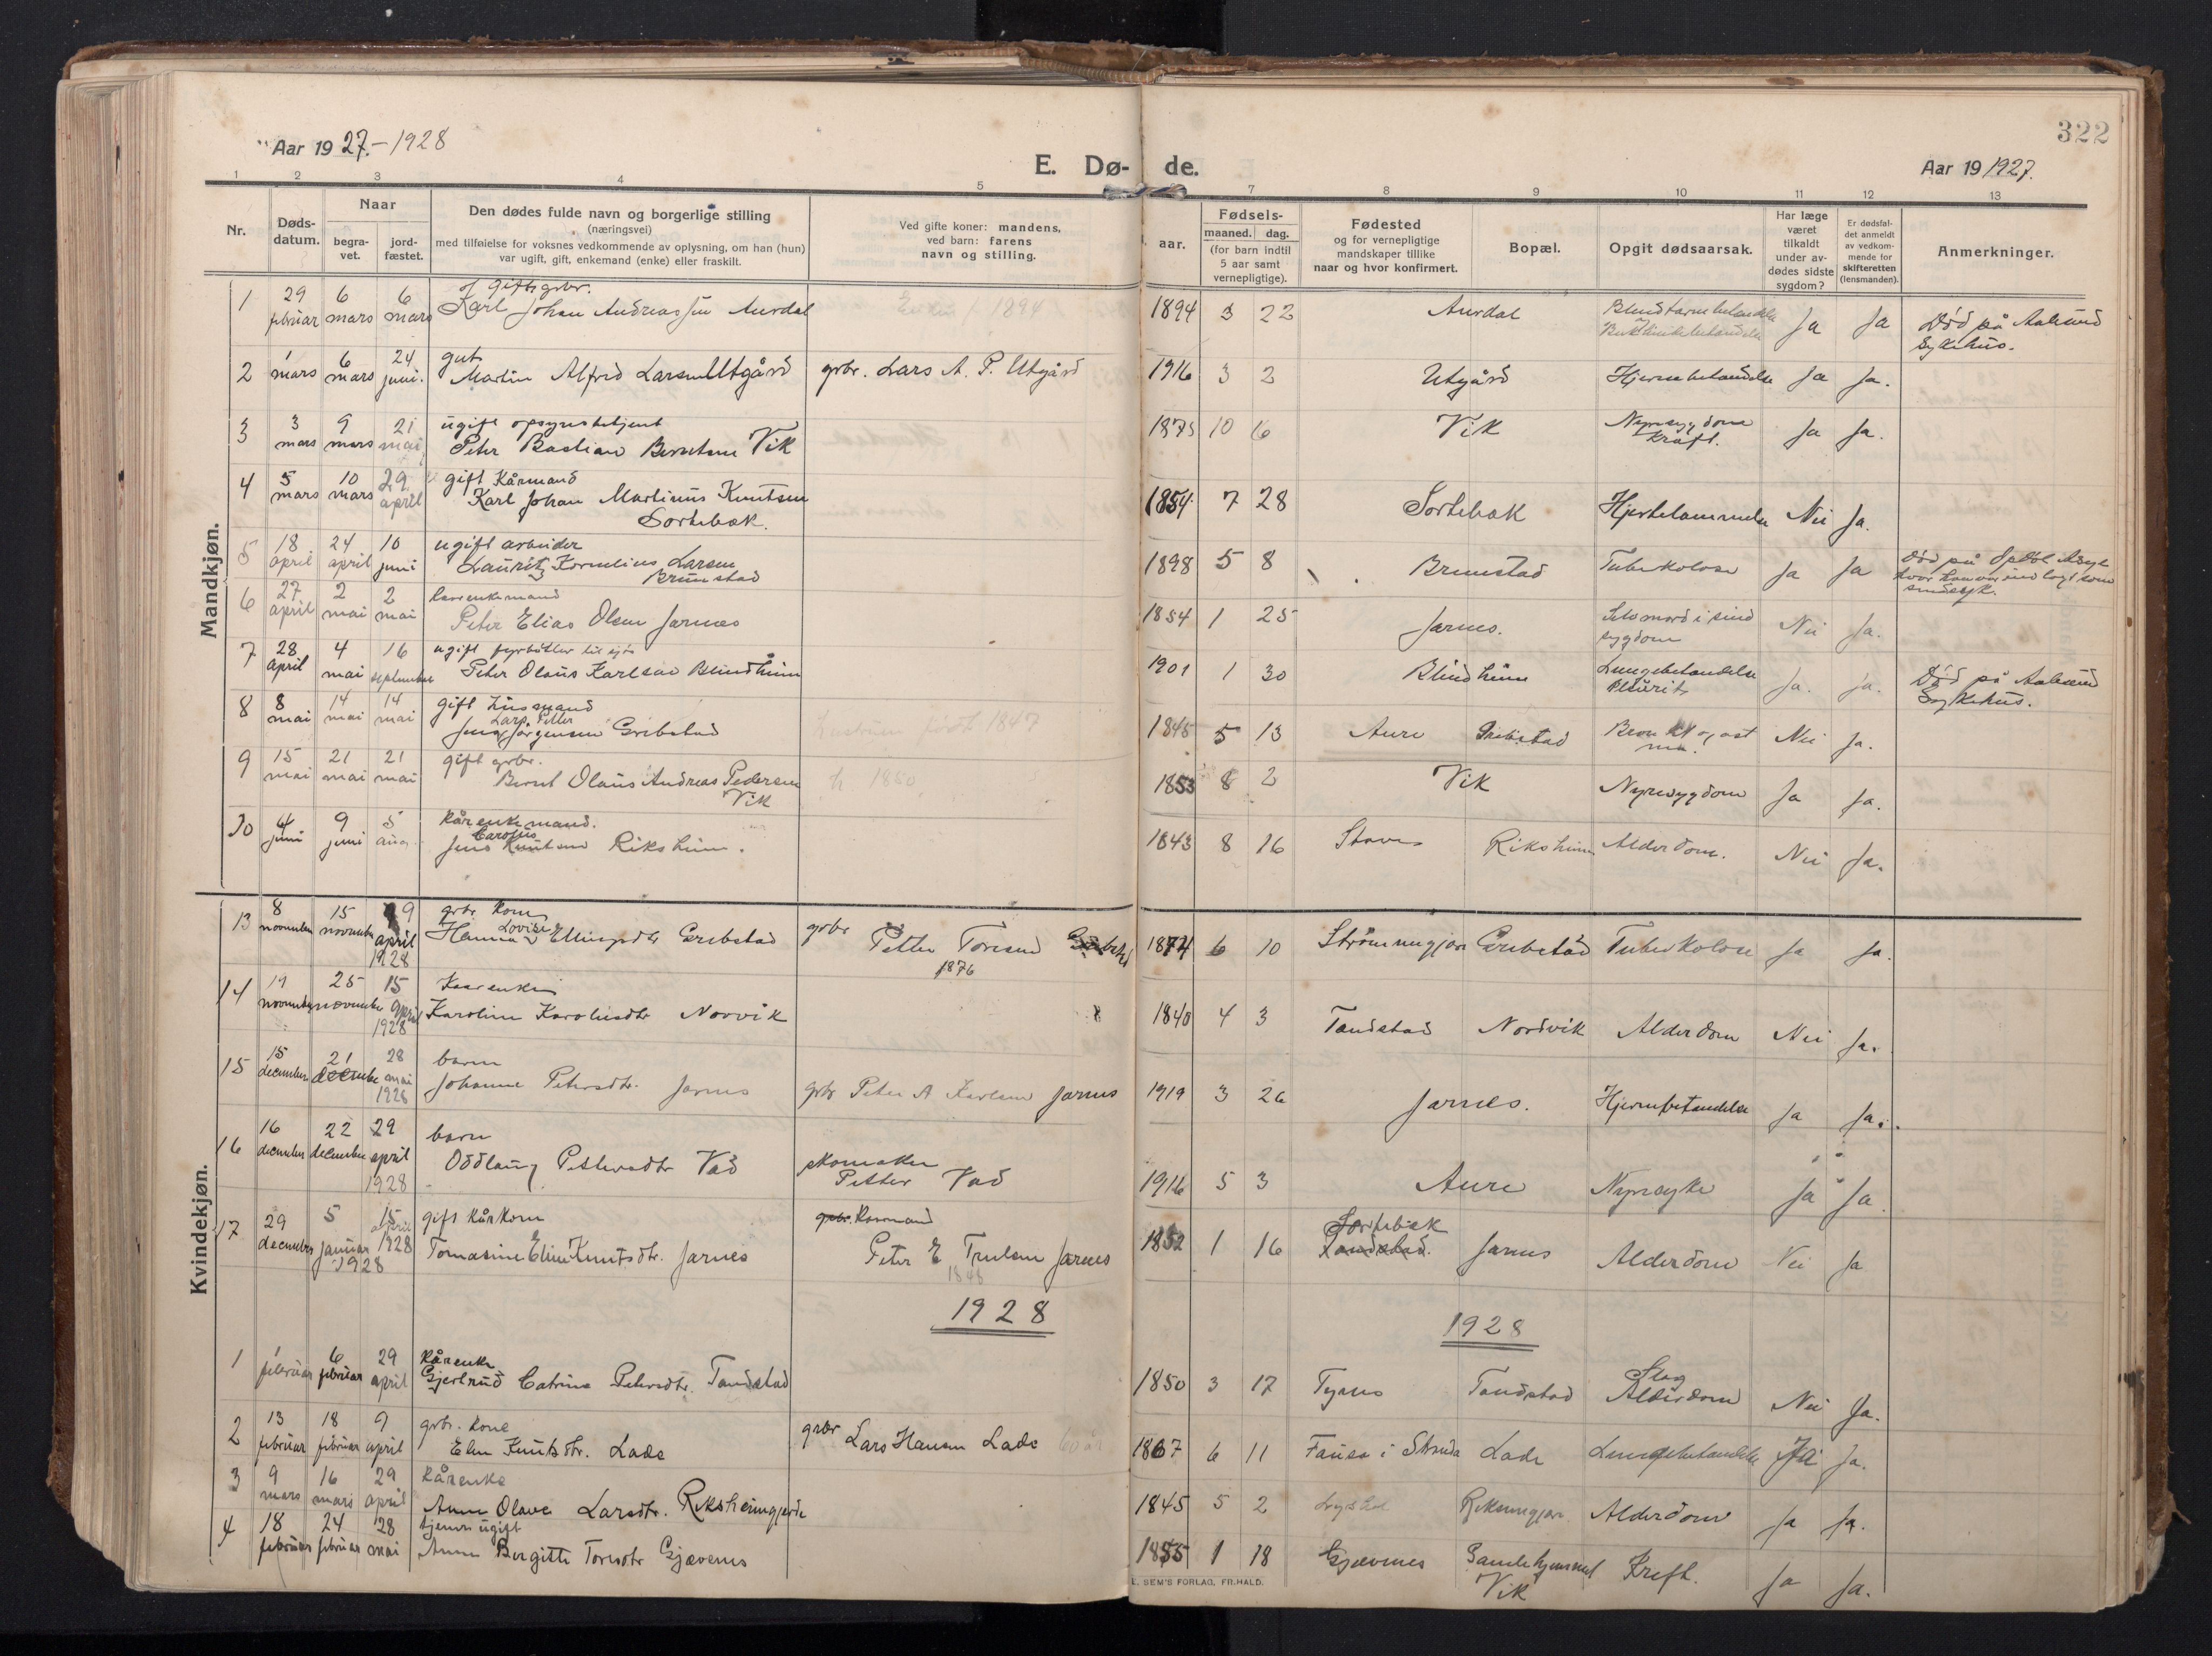 322
Aar 1927.-1928
E. Dø- de.
Aar 19 1927.
1 2 3 4 5 7 8 9 10 11 12 13
Nr.
Døds-
datum.
Naar
begra-
vet.
jord-
fæstet.
Den dødes fulde navn og borgerlige stilling
(næringsvei)
med tilføielse for voksnes vedkommende av oplysning, om han (hun)
var ugift, gift, enkemand (enke) eller fraskilt.
Ved gifte koner: mandens,
ved barn: farens
navn og stilling.
Fødsels-
aar.
maaned. dag.
(for barn indtil
5 aar samt
vernepligtige).
Fødested
og for vernepligtige
mandskaper tillike
naar og hvor konfirmert.
Bopæl.
Opgit dødsaarsak.
Har læge
været
tilkaldt
under av-
dødes sidste
sygdom?
Er dødsfal-
det anmeldt
av vedkom-
mende for
skifteretten
(lensmanden).
Anmerkninger.
Mandkjøn.
1 29 februar 6 mars 6 mars gift grbr.
Karl Johan Andreassen Aurdal 1894 3 22 Aurdal Blindtarmbetendelse Ja Ja Død på Aalesund
Sykehus.
2 1 mars 6 mars 24 juni. gut
Martin Alfred Larsen Utgård grbr. Lars A. P. Utgård 1916 3 2 Utgård Hjernebetendelse Ja Ja.
3 3 mars 9 mars 21 mai ugift opsynsbetjent
Peter Bastian Berntsen Vik 1875 10 6 Vik Nyresygdom
kraft. Ja Ja.
4 5 mars 10 mars 29 april gift Kårmand
Karl Johan Martinus Knutsen
Sortebak. 1854 7 28 Sortebak Hjertelammelse Nei Ja.
5 18 april 24 april 10 juni ugift arbeider
Lauritz Kornelius Larsen
Brunstad 1898 5 8 Brunstad Tuberkolose Ja Ja Død på Opdøl Asyl
hvor han var indlagt som
sindssyk.
6 27 april 2 mai 2 mai Kaarenkemand
Peter Elias Olsen Jarnes 1854 1 25 Jarnes. Selvmord i sind
sygdom Nei Ja.
7 28 april 4 mai 16 september ugift fyrbøter til sjøs
Peter Olaus Karlsen Blindheim 1901 1 30 Blindheim Lungebetendelse
Pleurit Ja. Ja. Død på Aalesund
Sykehus.
8 8 mai 14 mai 14 mai gift Husmand
Lars Petter
Jens Jørgensen Grebstad født 1847 1845 5 13 Aure Grebstad Bronkit og ast
ma. Nei Ja.
9 15 mai 21 mai 21 mai gift grbr.
Bernt Olaus Andreas Pedersen
Vik h 1850 1853 8 2 Vik Nyresygdom Ja Ja.
10 4 juni 9 juni 5 aug. Kårenkemand.
Carolus
Jens Knutsen Riksheim. 1843 8 16 Stave Riksheim Alderdom. Nei Ja.
Kvindekjøn.
13 8 november 15 november 9 april 1928 grbr. Kone
Lovise
Hanna Ellingsdtr Grebstad grbr Petter Toresen Grebstad
1876 1874 6 10 Strømmegjer Grebstad Tuberkolose Ja Ja.
14 19 november 25 november 15 april 1928 Kaarenke
Karoline Karolusdtr Norvik 1840 4 3 Tandstad Nordvik Alderdom Nei Ja.
15 15 december 21 december 28 mai 1928 barn
Johanne Petersdtr. Jarnes grbr Peter A Karlsen Jarnes 1919 3 26 Jarnes. Hjernebetendelse Ja Ja.
16 16 december 22 december 29 april 1928 barn
Oddlaug Pettersdtr Vad skomaker
Petter Vad 1916 5 3 Aure Nyresyke Ja Ja
17 29 december 5 januar 1928 15 april 1928 gift Kårkone
Tomasine Eline Knutsdtr. Jarnes grbr. Kormand
Peter E Trulsen Jarnes
1848 1852 1 16 Sortebak
Tandstad. Jarnes Alderdom Nei Ja
1928 1928
1 1 februar 6 februar 29 april Kårenke
Gjertrud Catrine Petersdtr. Tandstad 1850 3 17 Tynes Tandstad Slag
Alderdom Nei Ja.
2 13 februar 18 februar 9 april grbr. Kone
Elen Knutsdtr. Lade grbr Lars Hansen Lade 60 år 1867 6 11 Fausa i Stranda Lade Lungebetendelse Ja Ja.
3 9 mars 16 mars 29 april Kårenke
Anne Olave Larsdtr. Riksheimgjerde 1845 5 2 Riksemgjer Alderdom Ja Ja.
4 18 februar 24 februar 28 mai tjener ugift
Anne Bergitte Toresdtr Gjævenes 1855 1 18 Gjævenes Gamlehjemmet
Vik Kreft. Ja Ja.
SEM'S FORLAG, FR.HALD.